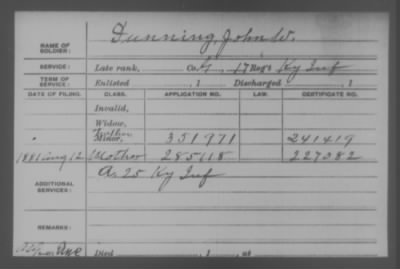 NAME OF SOLDIER: Dunning, John W.
SERVICE: Late rank, Co. G, 17 Reg't Ky Inf
TERM OF SERVICE: Enlisted , 1 Discharged , 1
DATE OF FILING. CLASS. APPLICATION NO. LAW. CERTIFICATE NO.
Invalid,
Widow,
Father
Minor, 351971 241419
1881 Aug 12 Mother 285118 227082
ADDITIONAL SERVICES: A. 25 Ky Inf
REMARKS:
Died , 1 , at